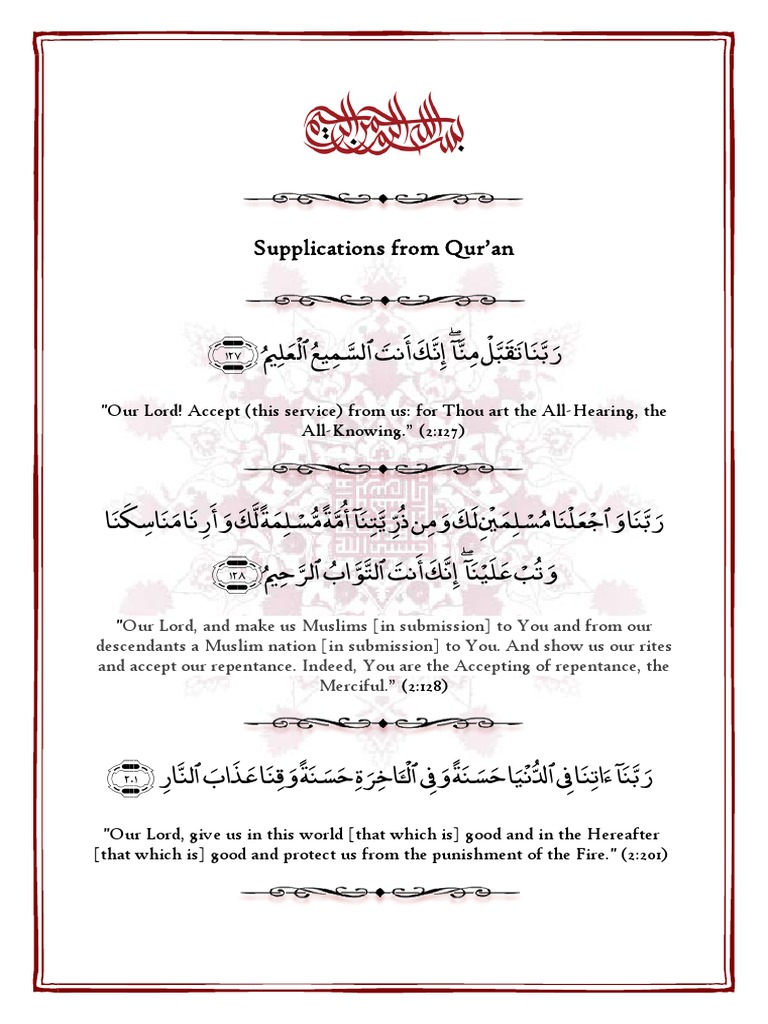 بسم الله الرحمن الرحيم
Supplications from Qur’an
رَبَّنَا تَقَبَّلْ مِنَّآ ۖ إِنَّكَ أَنتَ ٱلسَّمِيعُ ٱلْعَلِيمُ ١٢٧
"Our Lord! Accept (this service) from us: for Thou art the All-Hearing, the
All-Knowing.” (2:127)
رَبَّنَا وَٱجْعَلْنَا مُسْلِمَيْنِ لَكَ وَمِن ذُرِّيَّتِنَآ أُمَّةً مُّسْلِمَةً لَّكَ وَأَرِنَا مَنَاسِكَنَا
وَتُبْ عَلَيْنَآ ۖ إِنَّكَ أَنتَ ٱلتَّوَّابُ ٱلرَّحِيمُ ١٢٨
"Our Lord, and make us Muslims [in submission] to You and from our
descendants a Muslim nation [in submission] to You. And show us our rites
and accept our repentance. Indeed, You are the Accepting of repentance, the
Merciful.” (2:128)
رَبَّنَآ ءَاتِنَا فِى ٱلدُّنْيَا حَسَنَةً وَفِى ٱلْـَٔاخِرَةِ حَسَنَةً وَقِنَا عَذَابَ ٱلنَّارِ ٢٠١
"Our Lord, give us in this world [that which is] good and in the Hereafter
[that which is] good and protect us from the punishment of the Fire." (2:201)